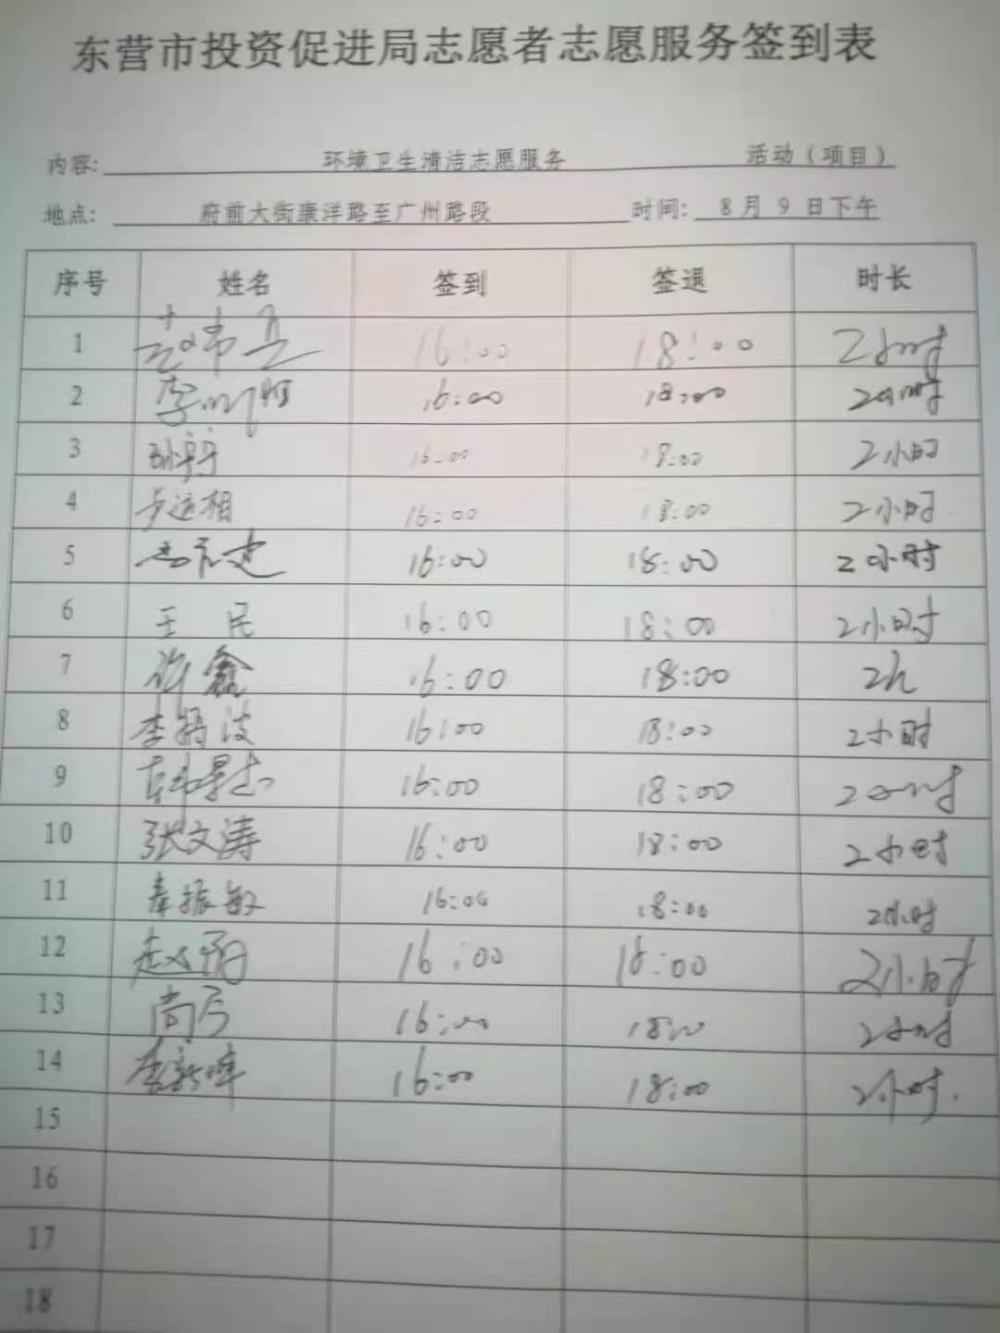 东营市投资促进局志愿者志愿服务签到表
内容: 环境卫生清洁志愿服务 活动（项目）
地点: 府前大街康洋路至广州路段 时间: 8月9日下午
序号 姓名 签到 签退 时长
1 16:00 18:00 2小时
2 李 16:00 18:00 2小时
3 孙宇宁 16:00 18:00 2小时
4 步运相 16:00 18:00 2小时
5 16:00 18:00 2小时
6 王民 16:00 18:00 2小时
7 许鑫 16:00 18:00 2h
8 李 波 16:00 18:00 2小时
9 韩 16:00 18:00 2小时
10 张文涛 16:00 18:00 2小时
11 秦振敏 16:00 18:00 2小时
12 赵 16:00 18:00 2小时
13 尚 16:00 18:00 2小时
14 李新峰 16:00 18:00 2小时.
15
16
17
18